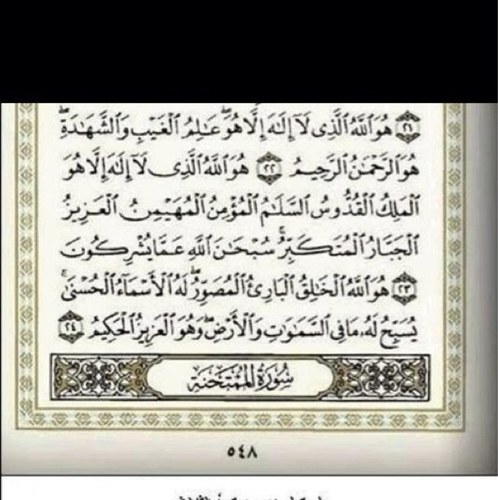 ﴿٢١﴾ هُوَ ٱللَّهُ ٱلَّذِى لَآ إِلَٰهَ إِلَّا هُوَ ۖ عَٰلِمُ ٱلْغَيْبِ وَٱلشَّهَٰدَةِ ۖ
هُوَ ٱلرَّحْمَٰنُ ٱلرَّحِيمُ ﴿٢٢﴾ هُوَ ٱللَّهُ ٱلَّذِى لَآ إِلَٰهَ إِلَّا هُوَ
ٱلْمَلِكُ ٱلْقُدُّوسُ ٱلسَّلَٰمُ ٱلْمُؤْمِنُ ٱلْمُهَيْمِنُ ٱلْعَزِيزُ
ٱلْجَبَّارُ ٱلْمُتَكَبِّرُ ۚ سُبْحَٰنَ ٱللَّهِ عَمَّا يُشْرِكُونَ
﴿٢٣﴾ هُوَ ٱللَّهُ ٱلْخَٰلِقُ ٱلْبَارِئُ ٱلْمُصَوِّرُ ۖ لَهُ ٱلْأَسْمَآءُ ٱلْحُسْنَىٰ ۚ
يُسَبِّحُ لَهُۥ مَا فِى ٱلسَّمَٰوَٰتِ وَٱلْأَرْضِ ۖ وَهُوَ ٱلْعَزِيزُ ٱلْحَكِيمُ ﴿٢٤﴾
سُورَةُ ٱلْمُمْتَحَنَةِ
٥٤٨